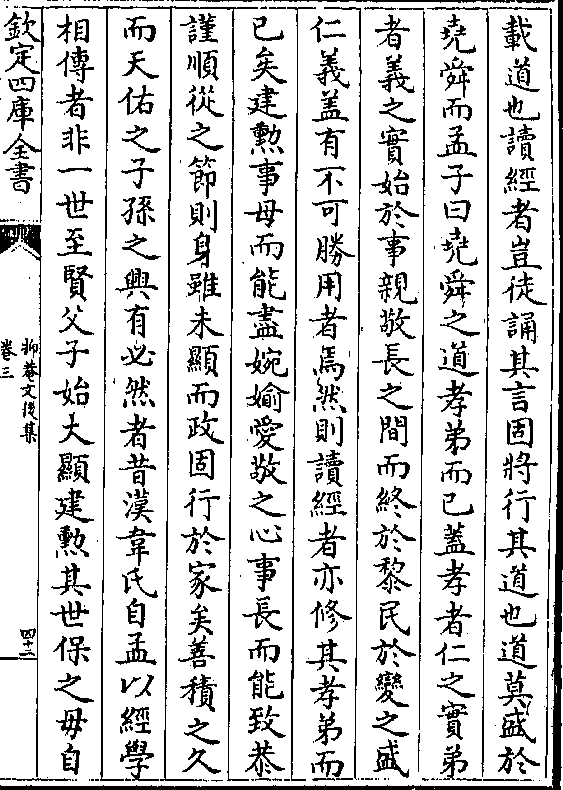 載道也讀經者豈徒誦其言固將行其道也道莫盛於
堯舜而孟子曰堯舜之道孝弟而已蓋孝者仁之實弟
者義之實始於事親敬長之間而終於黎民於變之盛
仁義蓋有不可勝用者焉然則讀經者亦修其孝弟而
已矣建勲事母而能盡婉媮愛敬之心事長而能致恭
謹順從之節則身雖未顯而政固行於家矣善積之久
而天佑之子孫之興有必然者昔漢韋氏自孟以經學
相傳者非一世至賢父子始大顯建勲其世保之毋自
欽定四庫全書
抑菴文後集
卷三
四十二